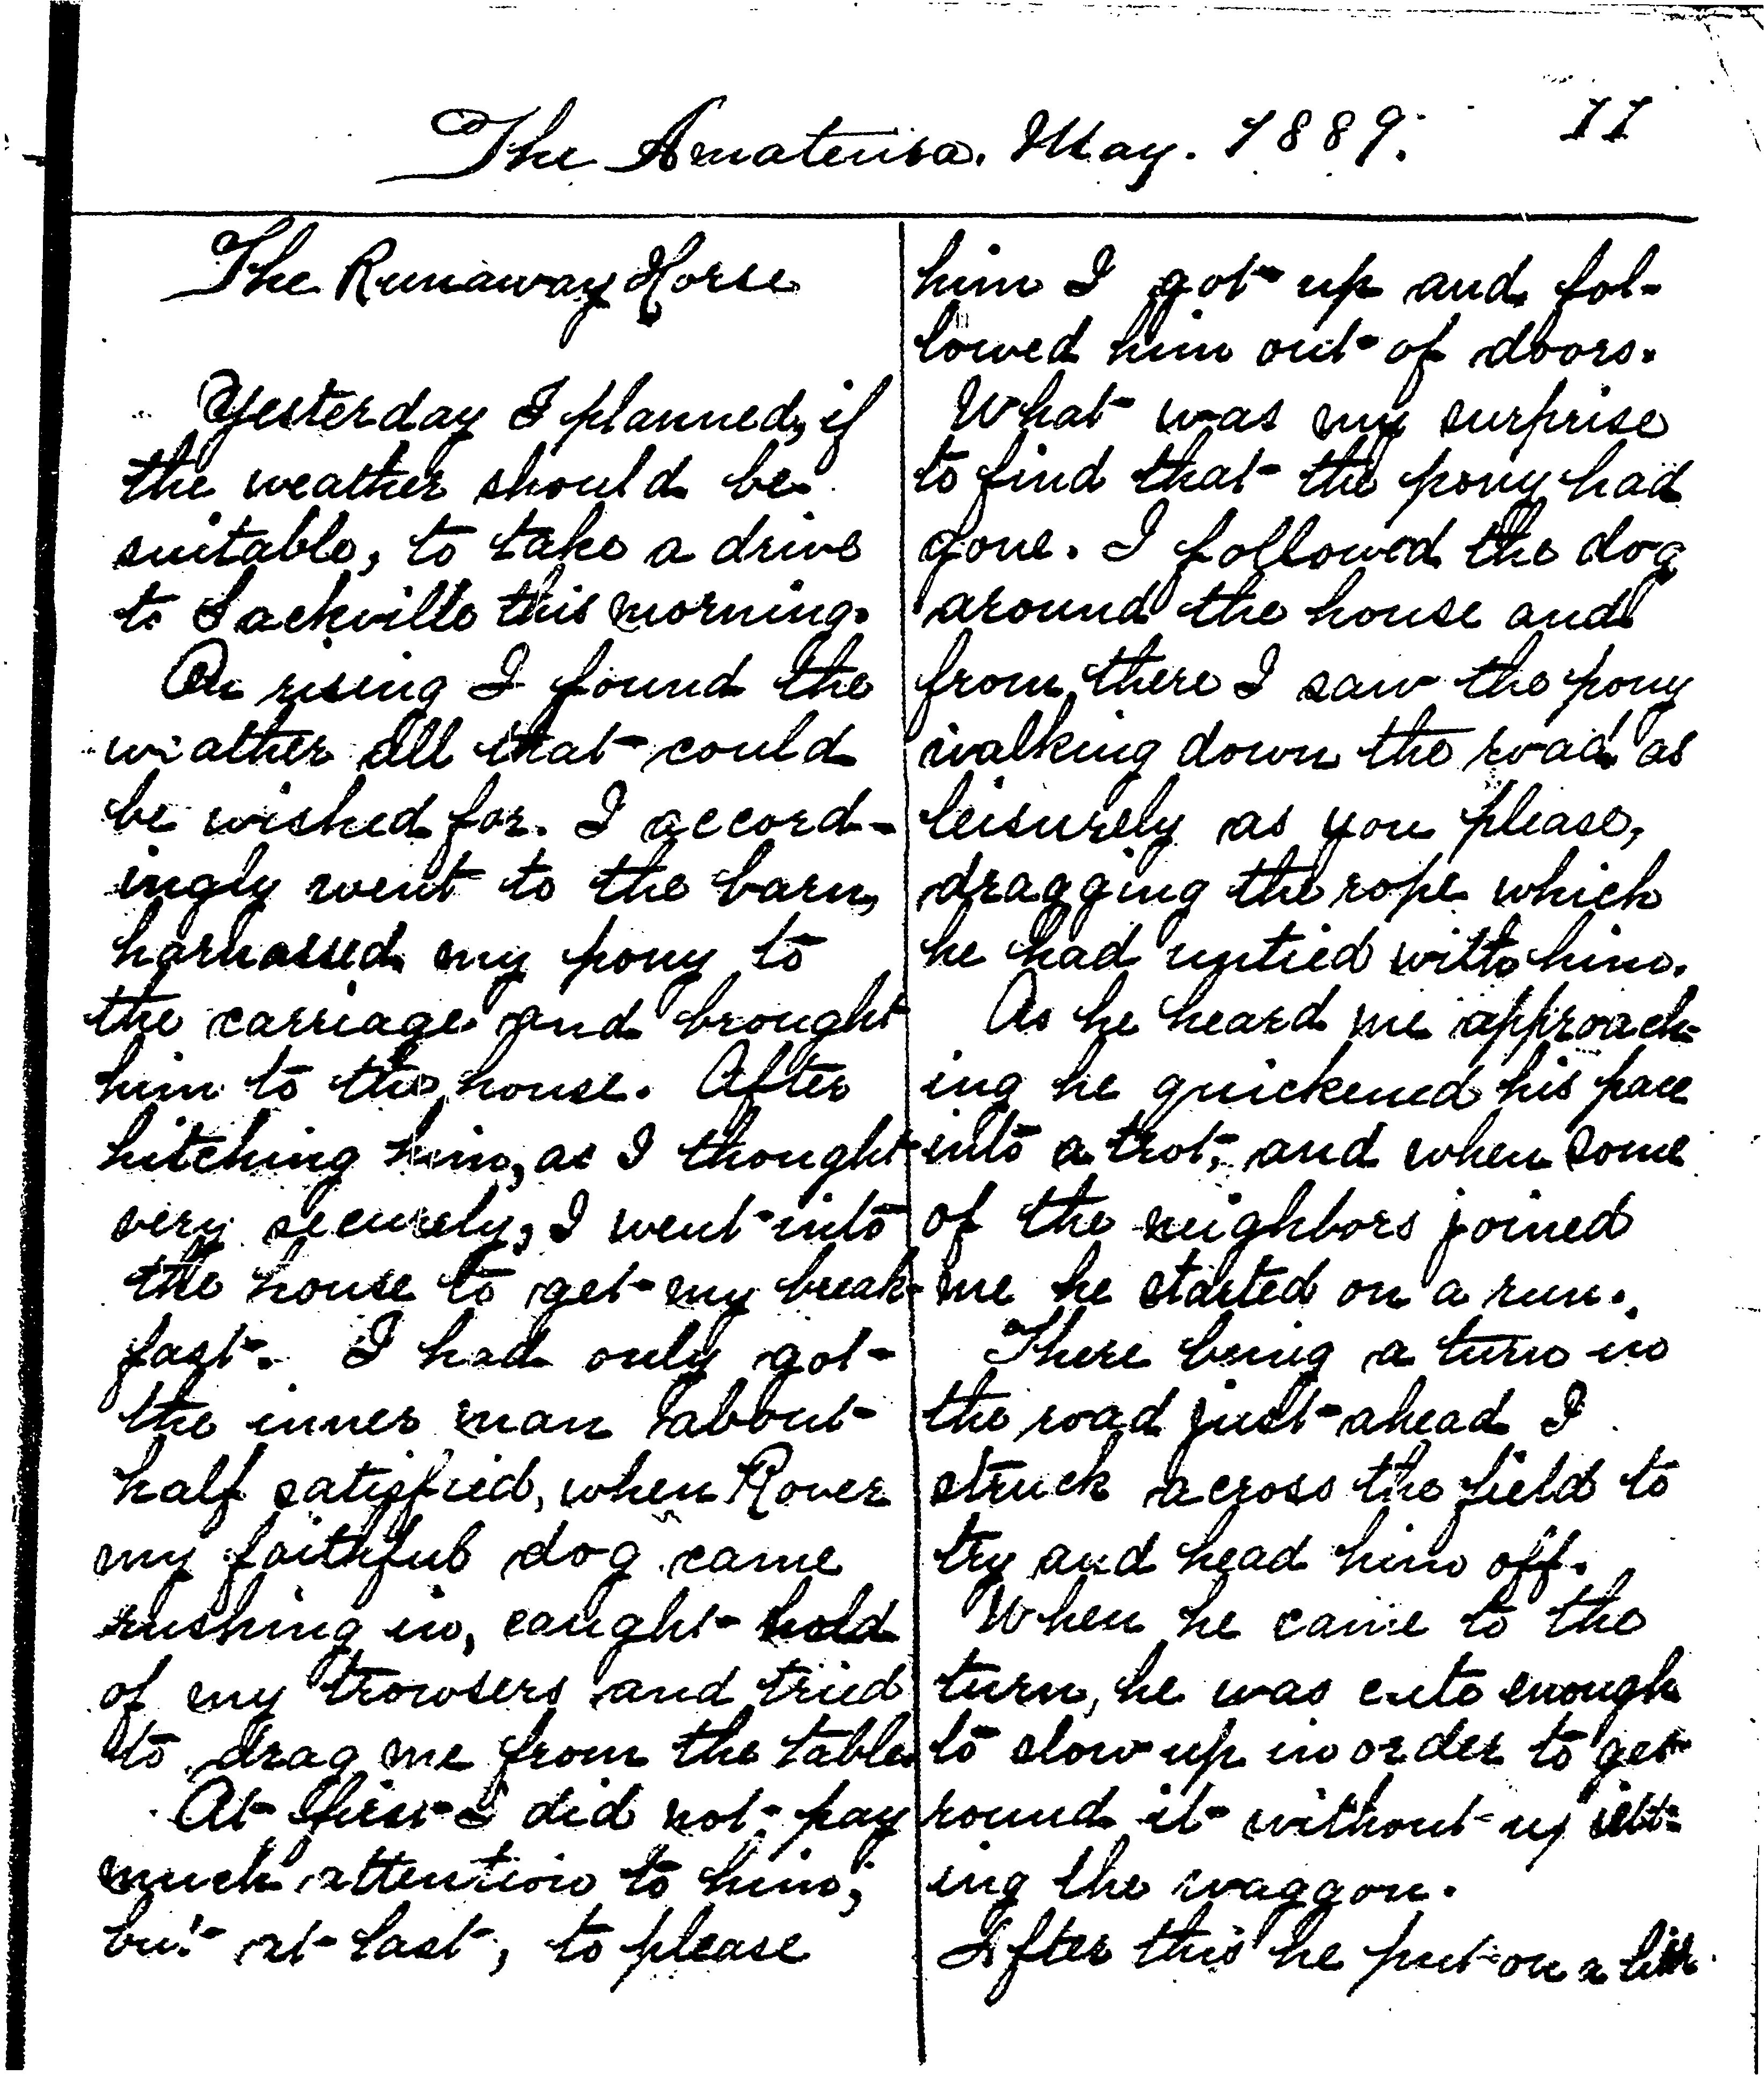 The Amateur. May. 1889. 11
The Runaway Horse
Yesterday I planned, if
the weather should be
suitable, to take a drive
to Sackville this morning.
On rising I found the
weather all that could
be wished for. I accord-
ingly went to the barn,
harnassed my pony to
the carriage and brought
him to the house. After
hitching him, as I thought
very securely, I went into
the house to get my break-
fast. I had only got
the inner man about
half satisfied, when Rover
my faithful dog came
rushing in, caught hold
of my trowsers and tried
to drag me from the table.
At first I did not pay
much attention to him;
but at last, to please
him I got up and fol-
lowed him out of doors.
What was my surprise
to find that the pony had
gone. I followed the dog
around the house and
from there I saw the pony
walking down the road as
leisurely as you please,
dragging the rope which
he had untied with him.
As he heard me approach-
ing he quickened his pace
into a trot, and when some
of the neighbors joined
me he started on a run.
There being a turn in
the road just ahead I
struck across the field to
try and head him off.
When he came to the
turn, he was cute enough
to slow up in order to get
round it without upsett-
ing the waggon.
After this he put on a